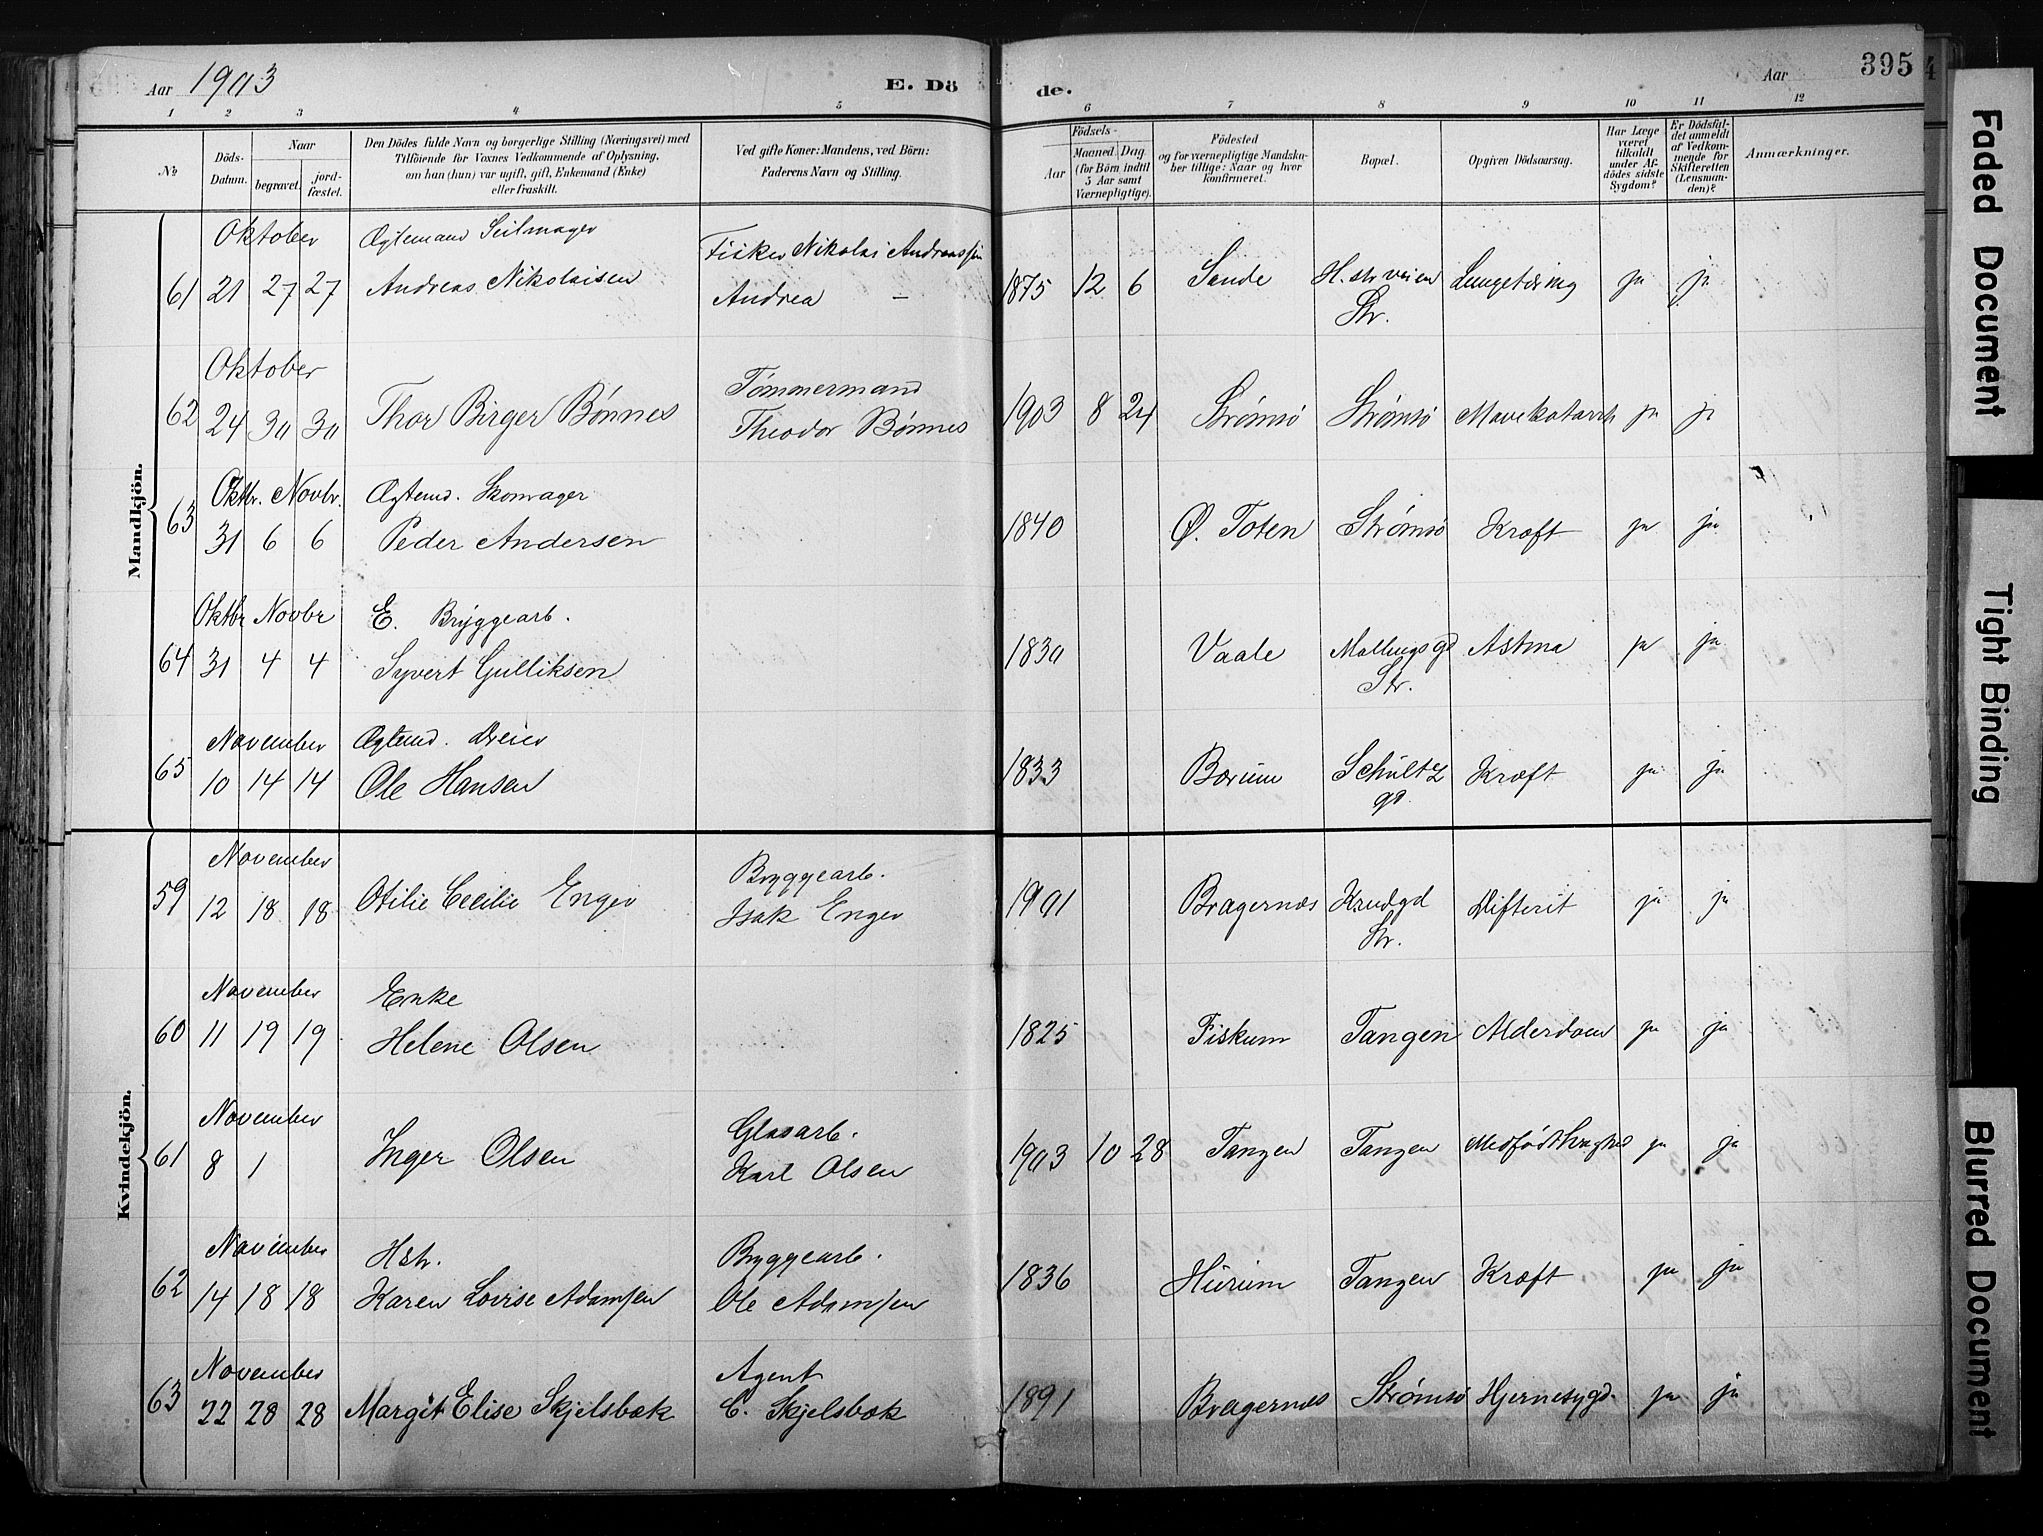 Aar 1903
E. Dö
de.
Aar
395
1 2 3 4 5 6 7 8 9 10 11 12
No
Döds-Datum.
Naar
begravet.
jord-fæstet.
Den Dödes fulde Navn og borgerlige Stilling (Næringsvei) med
Tilföiende for Voxnes Vedkommende af Oplysning,
om han (hun) var ugift, gift, Enkemand (Enke)
eller fraskilt.
Ved gifte Koner: Mandens, ved Börn:
Faderens Navn og Stilling.
Födsels-
Aar
Maaned. Dag
(for Börn indtil
5 Aar samt
Værnepligtige).
Födested
og for værnepligtige Mandska-
ber tillige: Naar og hvor
konfirmeret.
Bopæl.
Opgiven Dödsaarsag.
Har Læge
været
tilkaldt
under Af-
dödes sidste
Sygdom?
Er Dödsfal-
det anmeldt
af Vedkom-
mende for
Skifteretten
(Lensman-
den)?
Anmærkninger.
Mandkjön.
Oktober Ægtemand Seilmager Fisker Nikolai Andreassen
61 21 27 27 Andreas Nikolaisen Andrea — 1875 12 6 Sande H.str veien Lungetæring ja ja
Str.
Oktober Tømmermand
62 24 30 30 Thor Birger Bønnes Theodor Bønnes 1903 8 24 Strømsø Strømsø Mavekatarrh ja ja
Oktbr. Novbr. Ægtemd. Skomager
63 31 6 6 Peder Andersen 1840 Ø. Toten Strømsø Kræft ja ja
Oktbr Novbr E. Bryggearb.
64 31 4 4 Syvert Gulliksen 1830 Vaale Mallingsgd Astma ja ja
Str.
November Ægtemd. Dreier
65 10 14 14 Ole Hansen 1833 Bærum Schultz Kræft ja ja
gd.
Kvindekjön.
November Bryggearb.
59 12 18 18 Otilie Cecilie Enger Isak Enger 1901 Bragernæs Krudgd Difterit ja ja
Str.
November Enke
60 11 19 19 Helene Olsen 1825 Fiskum Tangen Alderdom ja ja
November Glasarb.
61 8 1 Inger Olsen Karl Olsen 1903 10 28 Tangen Tangen ja ja
November Hstr. Bryggearb.
62 14 18 18 Karen Lovise Adamsen Ole Adamsen 1836 Hurum Tangen Kræft ja ja
November Agent
63 22 28 28 Margit Elise Skjelsbæk C. Skjelsbæk 1891 Bragernæs Strømsø Hjernesygd. ja ja
Faded Document
Tight Binding
Blurred Document